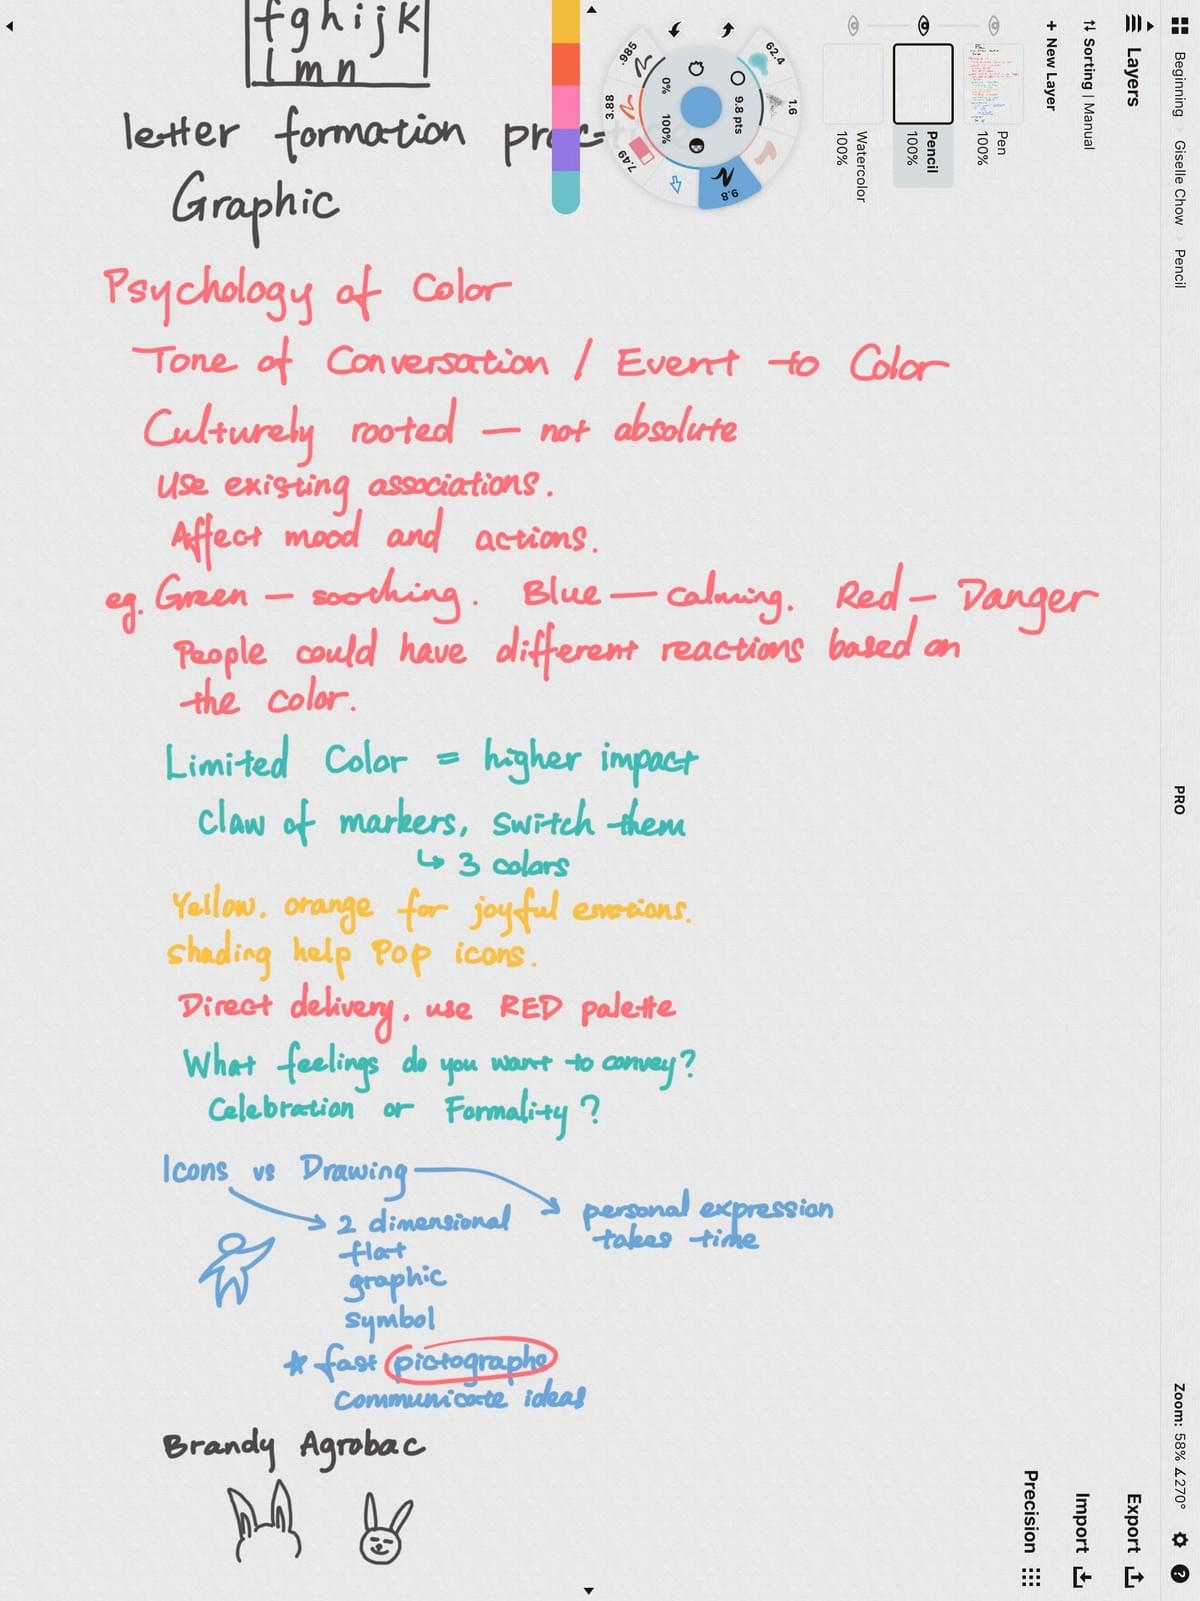 f g h i j k
l m n
letter formation practice
Graphic
Psychology of Color
Tone of Conversation / Event to Color
Culturely rooted — not absolute
Use existing associations.
Affect mood and actions.
eg. Green — soothing. Blue — calming. Red — Danger
People could have different reactions based on
the color.
Limited Color = higher impact
Claw of markers, switch them
↳ 3 colors
Yellow, orange for joyful emotions.
shading help Pop icons.
Direct delivery, use RED palette
What feelings do you want to convey?
Celebration or Formality?
Icons vs Drawing
personal expression
takes time
2 dimensional
flat
graphic
symbol
* fast pictographs
communicate ideas
Brandy Agrobac
Beginning › Giselle Chow › Pencil
PRO
Zoom: 58% ∡270°
Layers
Sorting | Manual
+ New Layer
Pen
100%
Pencil
100%
Watercolor
100%
Export
Import
Precision
62.4
1.6
9.8
7.49
3.88
.985
9.8 pts
0%
100%